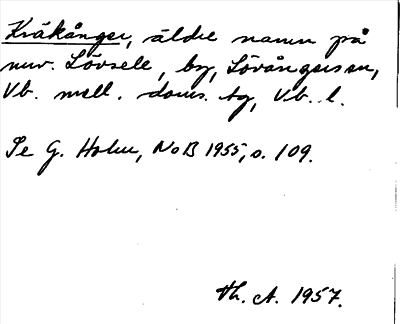 Kråkånger, äldre namn på
nuv. Lövsele, by, Lövångers sn,
Vb. mell. doms. tg, Vb. l.
Se G. Holm, NoB 1955, s. 109.
Th. A. 1957.